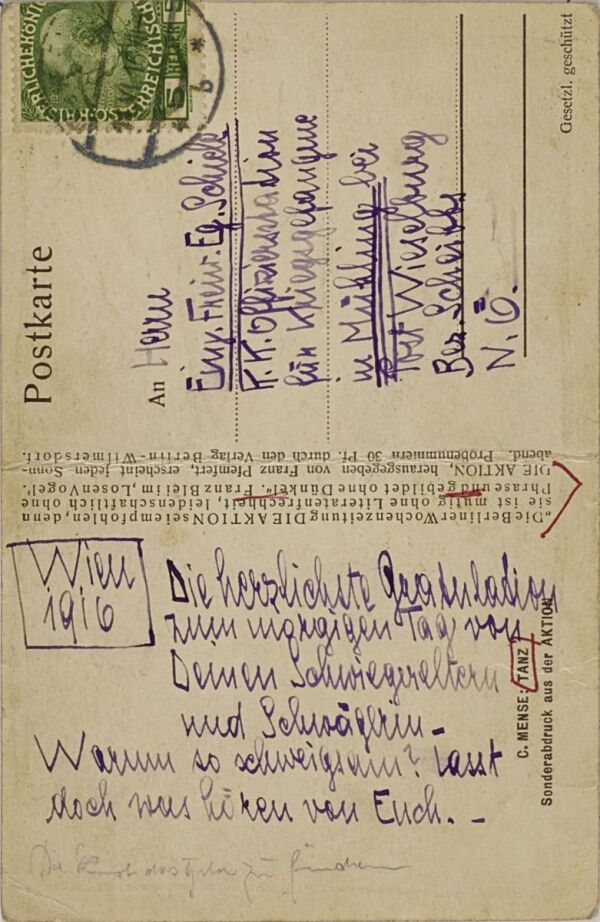 Postkarte
An Herrn
Einj. Freiw. Eg. Schiele
K.K. Offiziersstation
für Kriegsgefangene
in Mühling bei
Post Wieselburg
Bez. Scheibbs
N.Ö.
Gesetzl. geschützt
„Die Berliner Wochenzeitung DIE AKTION sei empfohlen, denn
sie ist mutig ohne Literatenfrechheit, leidenschaftlich ohne
Phrase und gebildet ohne Dünkel“. Franz Blei im „Losen Vogel“.
DIE AKTION, herausgegeben von Franz Pfemfert, erscheint jeden Sonn-
abend. Probenummern 30 Pf. durch den Verlag Berlin-Wilmersdorf.
Wien
1916
Die herzlichste Gratulation
zum morgigen Tag von
Deinen Schwiegereltern
und Schwägerin –
Warum so schweigsam? Lasst
doch was hören von Euch. –
C. MENSE: TANZ
Sonderabdruck aus der AKTION
5